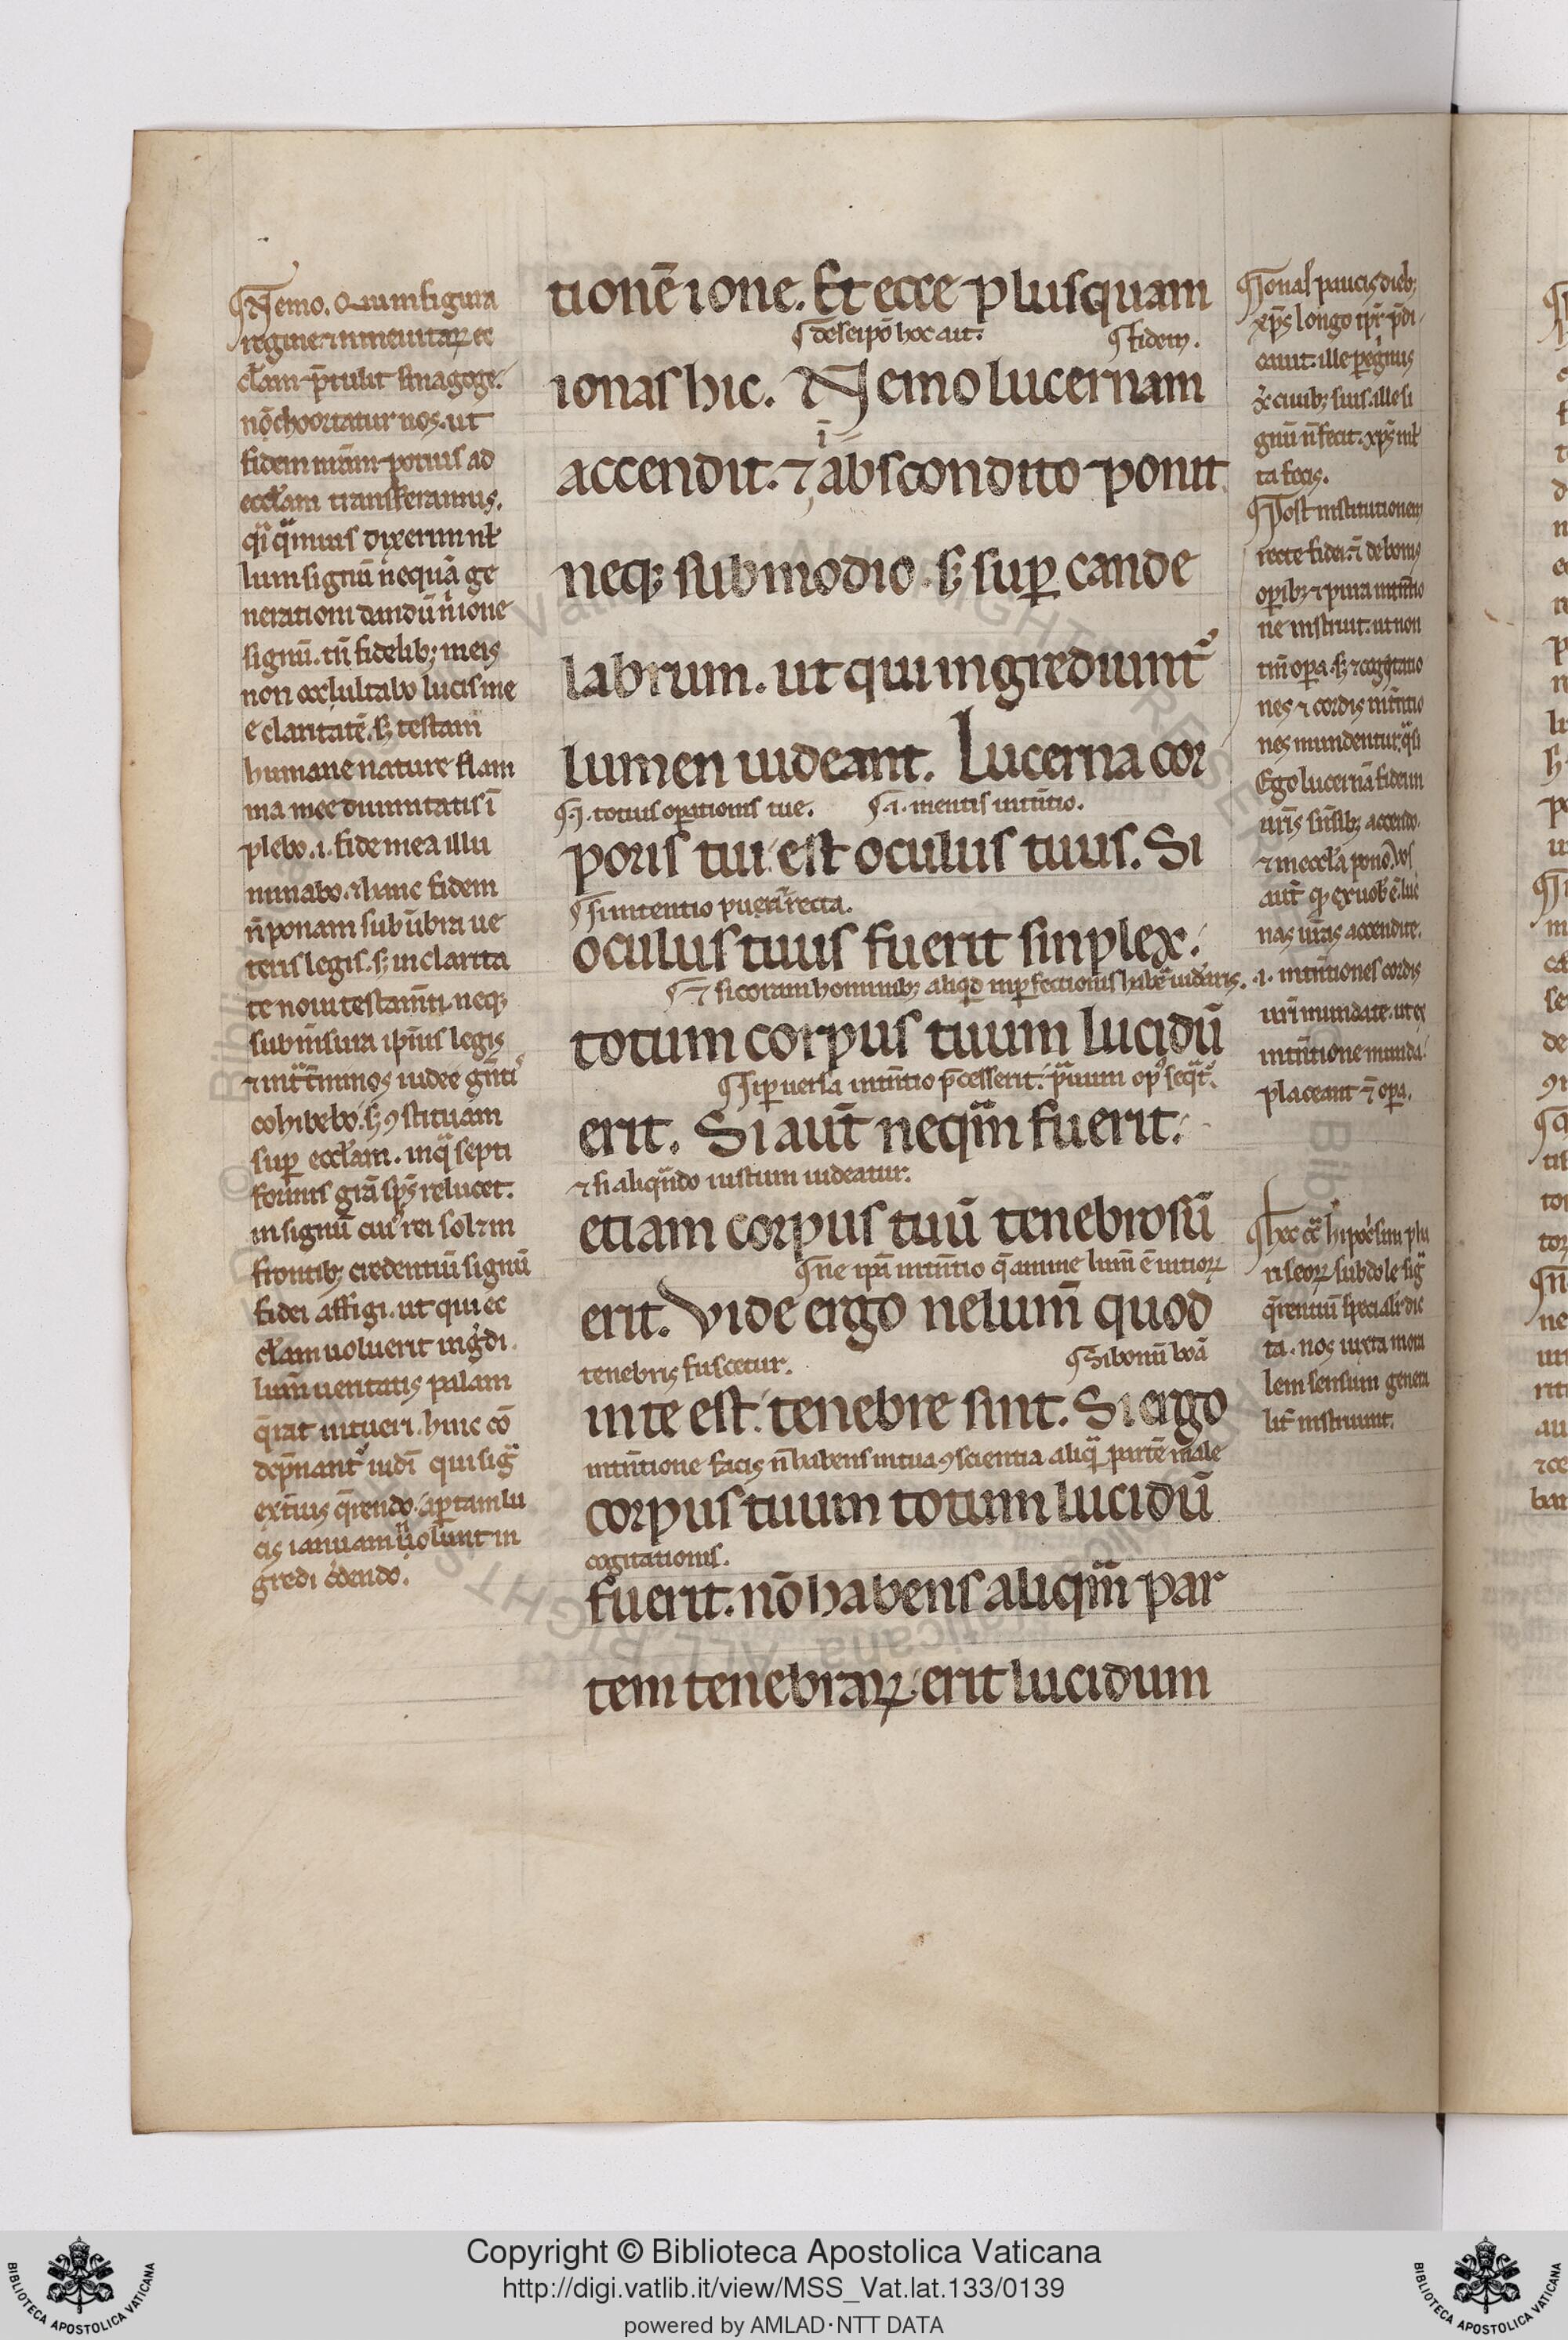 ¶Nemo. Q̄ia in figura
regine ⁊ nineuitaꝝ ec
cl̄am p̄tulit sinagoge.
nōc hoortatur nos. ut
fidem nr̄am potius ad
eccl̄am transferamus.
lum signū nequā ge
nerationi dandū n̄ ione
signū. tn̄ fidelib; meis
non occlultabo lucis me
e claritatē. s; testam
humane nature flam
ma mee diuinitatis ī
plebo .i. fide mea illu
minabo. ⁊ hanc fidem
n̄ ponam sub ūbra ue
teris legis. s; in clarita
te noui testam̄ti. neq;
sub m̄sura ip̄ius legis
cohibebo. s; ꝯstituam
suꝑ eccl̄am. in qͣ septi
formis gr̄a sp̄s relucet.
in signū cui᾽ rei sol⁊ in
frontib; credentiū signū
fidei affigi. ut qui ec
cl̄am uoluerit ing̓di.
lum̄ ueritatis palam
q̄rat intueri. hinc cō
dēpnant᾽ iudi᷑ qui sigͣ
ext̄ius q̄rendo. aꝑtam lu
cis ianuam n̄ uolunt in
gredi c̓dendo.
tionē ione. Et ecce plusquam
¶de seipo hoc ait. ¶fidem.
ionas hic. Nemo lucernam
ī
accendit. ⁊ abscondito ponit
neq; sub modio. s; suꝑ cande
labrum. ut qui ingrediunt᾽
lumen uideant. Lucerna cor
¶.i. totius oꝑationis tue. ¶.i. mentis int̄ntio.
poris tui est oculus tuus. Si
¶si intentio p̄uen̄it recta.
oculus tuus fuerit sinplex.
¶⁊ si coram hominib; aliqͥd inꝑfectionis habe᷑ uidearis.
totum corpus tuum lucidū
¶Si ꝑuersa int̄ntio p̄cesserit. prauum op᾽ seqͥt᾽.
erit. Si aut̄ neqͣm fuerit.
⁊ si aliqn̄do iustum uideatur.
etiam corpus tuū tenebrosū
¶ne ipā int̄ntio q̄ anime lum̄ ē uitioꝝ
erit. Vide ergo ne lum̄ quod
tenebris fuscetur. ¶Si bonū boā
in te est. tenebre sint. Si ergo
int̄ntione facis n̄ habens in tua ꝯscientia aliqͣ partē male
corpus tuum totum lucidū
cogitationis.
fuerit. nō habens aliqͣm par
tem tenebraꝝ. erit lucidum
¶Ionas paucis dieb;
xp̄s longo tp̄r p̄di
cauit. ille peg̓nis
ciuib; suis. ille si
gnū n̄ fecit. xp̄s ml̄
ta fecit.
¶Post institutionem
recte fidei. ⁊ de bonis
oꝑib; ⁊ pura int̄ntio
ne instruit. ut non
tm̄ oꝑa. s; ⁊ cogitatio
nes ⁊ cordis int̄ntio
nes mundentur. qͣsi
Ego lucernā fidei in
ur̄is sn̄sib; accendo.
⁊ in eccl̄a pono. Vos
aut̄ qͩ ex uob᾽ ē luc̄
nas ur̄as accendite.
.i. int̄ntiones cordis
uri᷑ mundate. ut ex
int̄ntione munda
placeant ⁊ oꝑa.
¶Hec c̄ᵃ hipoc̓sim pha
riseoꝝ subdole sigͣ
q̄rentiū specialit̄ dic
ta. nos iuxta mora
lem sensum genera
lit̄ instruunt.
Copyright © Biblioteca Apostolica Vaticana
http://digi.vatlib.it/view/MSS_Vat.lat.133/0139
powered by AMLAD·NTT DATA
BIBLIOTECA APOSTOLICA VATICANA
BIBLIOTECA APOSTOLICA VATICANA